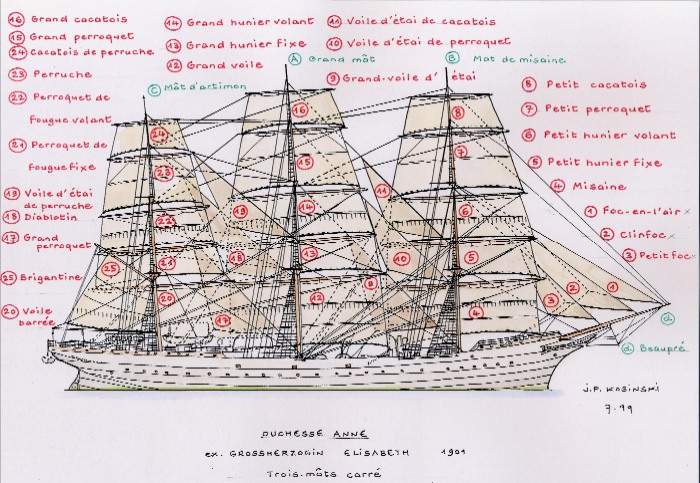 16 Grand cacatois
15 Grand perroquet
24 Cacatois de perruche
23 Perruche
22 Perroquet de
fougue volant
21 Perroquet de
fougue fixe
19 Voile d'étai
de perruche
18 Diablotin
17 Grand
perroquet
25 Brigantine
20 Voile
barrée
14 Grand hunier volant
13 Grand hunier fixe
12 Grand voile
C Mât d'artimon
A Grand mât
B Mat de misaine
11 Voile d'étai de cacatois
10 Voile d'étai de perroquet
9 Grand-voile d'étai
8 Petit cacatois
7 Petit perroquet
6 Petit hunier volant
5 Petit hunier fixe
4 Misaine
1 Foc-en-l'air x
2 Clinfoc x
3 Petit foc x
d
d Beaupré
24
23
22
21
20
25
19
18
17
16
15
14
13
12
11
10
9
8
7
6
5
4
3
2
1
J.P. KOSINSKI
7.99
DUCHESSE ANNE
ex. GROSSHERZOGIN ELISABETH 1901
Trois-mâts carré